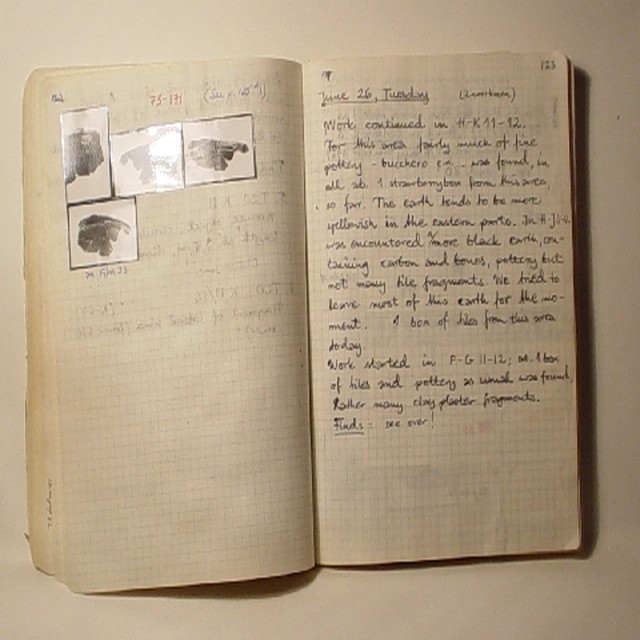 122
75-171 (See p. 120)
123
June 26, Tuesday (2 workmen)
Work continued in H-K 11-12.
For this area fairly much of fine
pottery - bucchero e.g. - was found, in
all ab. 1 strawberrybox from this area,
so far. The earth tends to be more
yellowish in the eastern parts. In H-J
was encountered more black earth, con-
taining carbon and bones, pottery but
not many tile fragments. We tried to
leave most of this earth for the mo-
ment. 1 box of tiles from this area
today.
Work started in F-G 11-12; ab. 1 box
of tiles and pottery as usual was found.
Rather many clay plaster fragments.
Finds: see over!